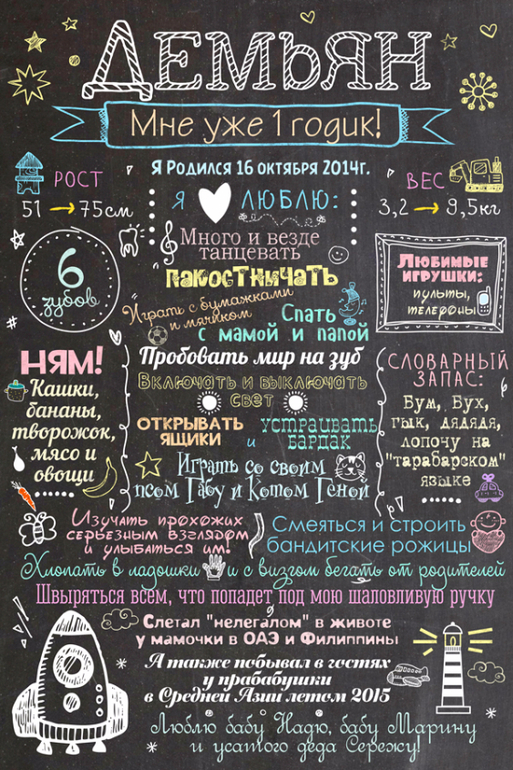 ДЕМЬЯН
Мне уже 1 годик!
Я Родился 16 октября 2014г.
РОСТ
51 → 75см
Я ЛЮБЛЮ:
ВЕС
3,2 → 9,5кг
6
зубов
Много и везде
танцевать
пакостничать
Играть с бумажками
и мячиком
Спать
с мамой и папой
Пробовать мир на зуб
Включать и выключать
свет
ОТКРЫВАТЬ
ЯЩИКИ
и
устраивать
бардак
Играть со своим
псом Габу и Котом Геной
Любимые
игрушки:
пульты,
телефоны
НЯМ!
Кашки,
бананы,
творожок,
мясо и
овощи
СЛОВАРНЫЙ
ЗАПАС:
Бум, Бух,
гык, дядядя,
лопочу на
"тарабарском"
языке
Изучать прохожих
серьезным взглядом
и улыбаться им!
Смеяться и строить
бандитские рожицы
Хлопать в ладошки и с визгом бегать от родителей
Швыряться всем, что попадет под мою шаловливую ручку
Слетал "нелегалом" в животе
у мамочки в ОАЭ и Филиппины
А также побывал в гостях
у прабабушки
в Средней Азии летом 2015
Люблю бабу Надю, бабу Марину
и усатого деда Сережу!